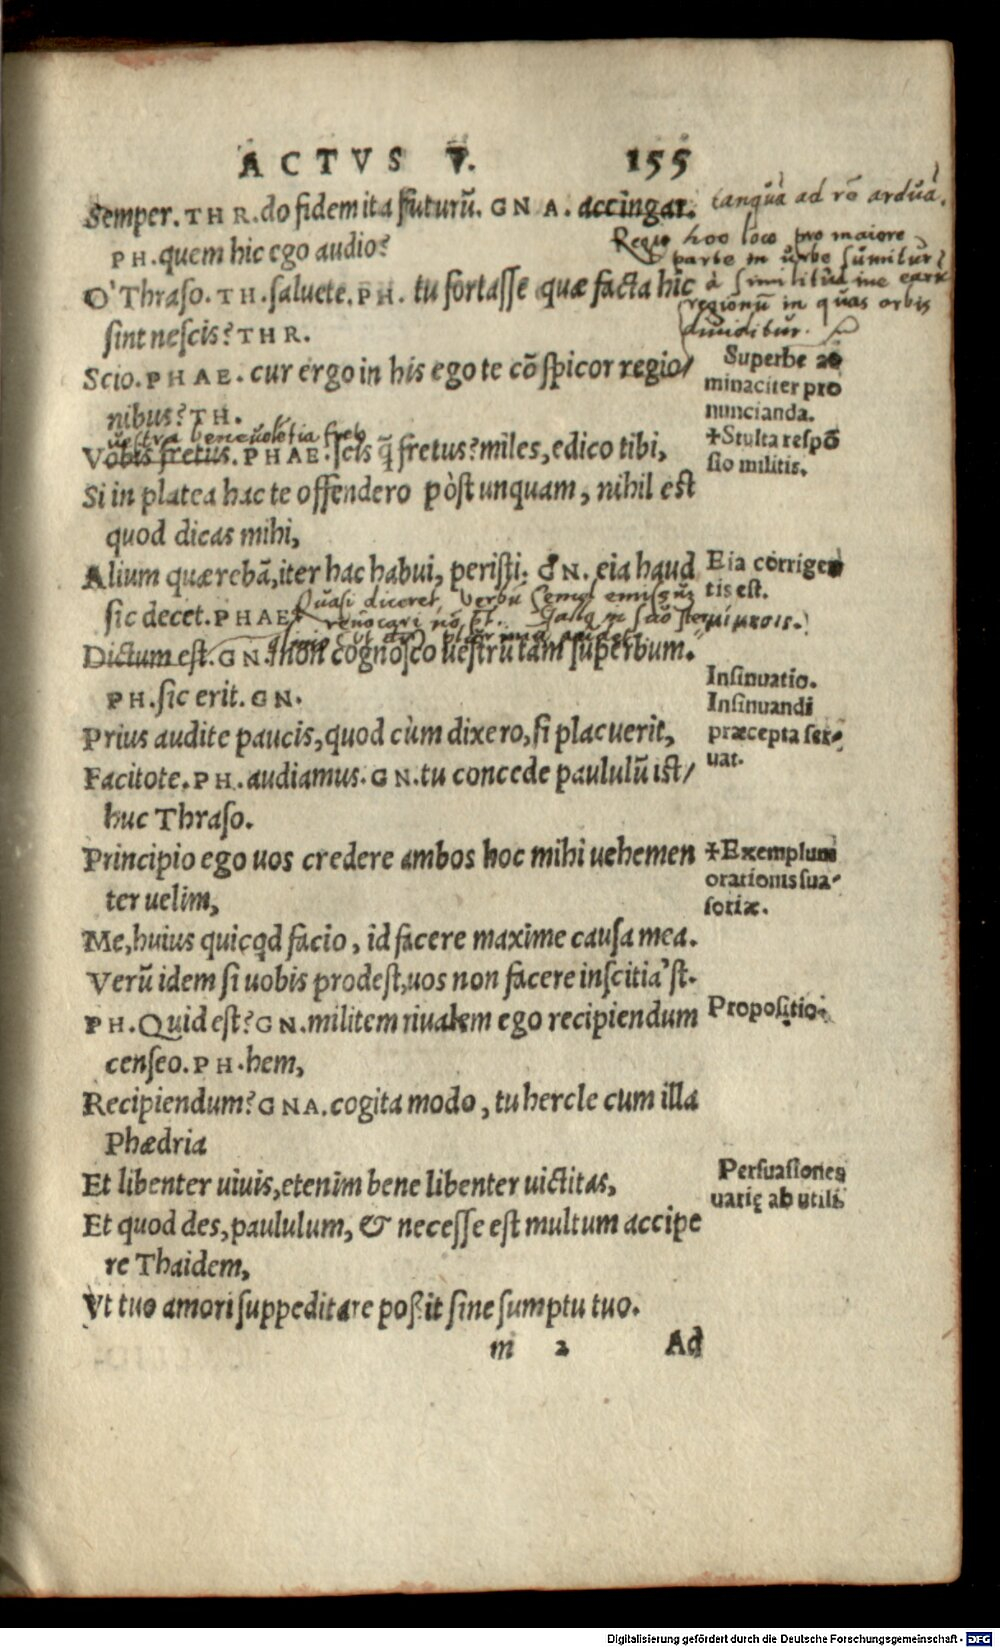 ACTVS V. 155
Semper. THR. do fidem ita futurũ. GNA. accingar. tanquā ad rē arduā.
PH. quem hic ego audio?
Regio hoc loco pro maiore
parte in urbe sumitur
O' Thraso. TH. saluete. PH. tu fortasse quæ facta hic
à similitudine earū
regionū in quas orbis
diuiditur.
sint nescis? THR.
Scio. PHAE. cur ergo in his ego te cõspicor regio/
nibus? TH.
Superbe ac
minaciter pro
nuncianda.
uestra beneuolētia freto
Vobis fretus. PHAE. scis q̃ fretus? miles, edico tibi,
+Stulta respõ
sio militis.
Si in platea hac te offendero pòst unquam, nihil est
quod dicas mihi,
Alium quærebã, iter hac habui, peristi. GN. eia haud
Eia corrigen
tis est.
sic decet. PHAE.
Quasi diceret, Verbū semel emissū
reuocari nō pt.
μίμησις.
Dictum est. GN. non cognosco uestrũ tam superbum.
PH. sic erit. GN.
Insinuatio.
Insinuandi
præcepta ser-
uat.
Prius audite paucis, quod cùm dixero, si placuerit,
Facitote. PH. audiamus. GN. tu concede paululũ ist/
huc Thraso.
Principio ego uos credere ambos hoc mihi uehemen
ter uelim,
+Exemplum
orationis sua-
soriæ.
Me, huius quicqd facio, id facere maxime causa mea.
Verũ idem si uobis prodest, uos non facere inscitia'st.
PH. Quid est? GN. militem riualem ego recipiendum
Propositio.
censeo. PH. hem,
Recipiendum? GNA. cogita modo, tu hercle cum illa
Phædria
Et libenter uiuis, etenim bene libenter uictitas,
Persuasiones
uarię ab utili.
Et quod des, paululum, & necesse est multum accipe
re Thaidem,
Vt tuo amori suppeditare possit sine sumptu tuo.
m 2 Ad
Digitalisierung gefördert durch die Deutsche Forschungsgemeinschaft - DFG